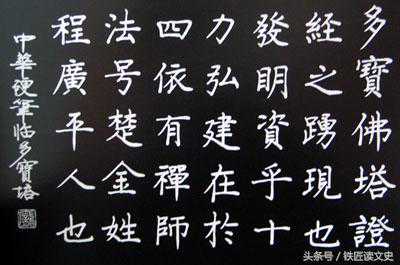 多寶佛塔證
經之踴現也
發明資乎十
力弘建在於
四依有禪師
法号楚金姓
程廣平人也
中華硬筆临多寶塔
头条号/铁匠读文史